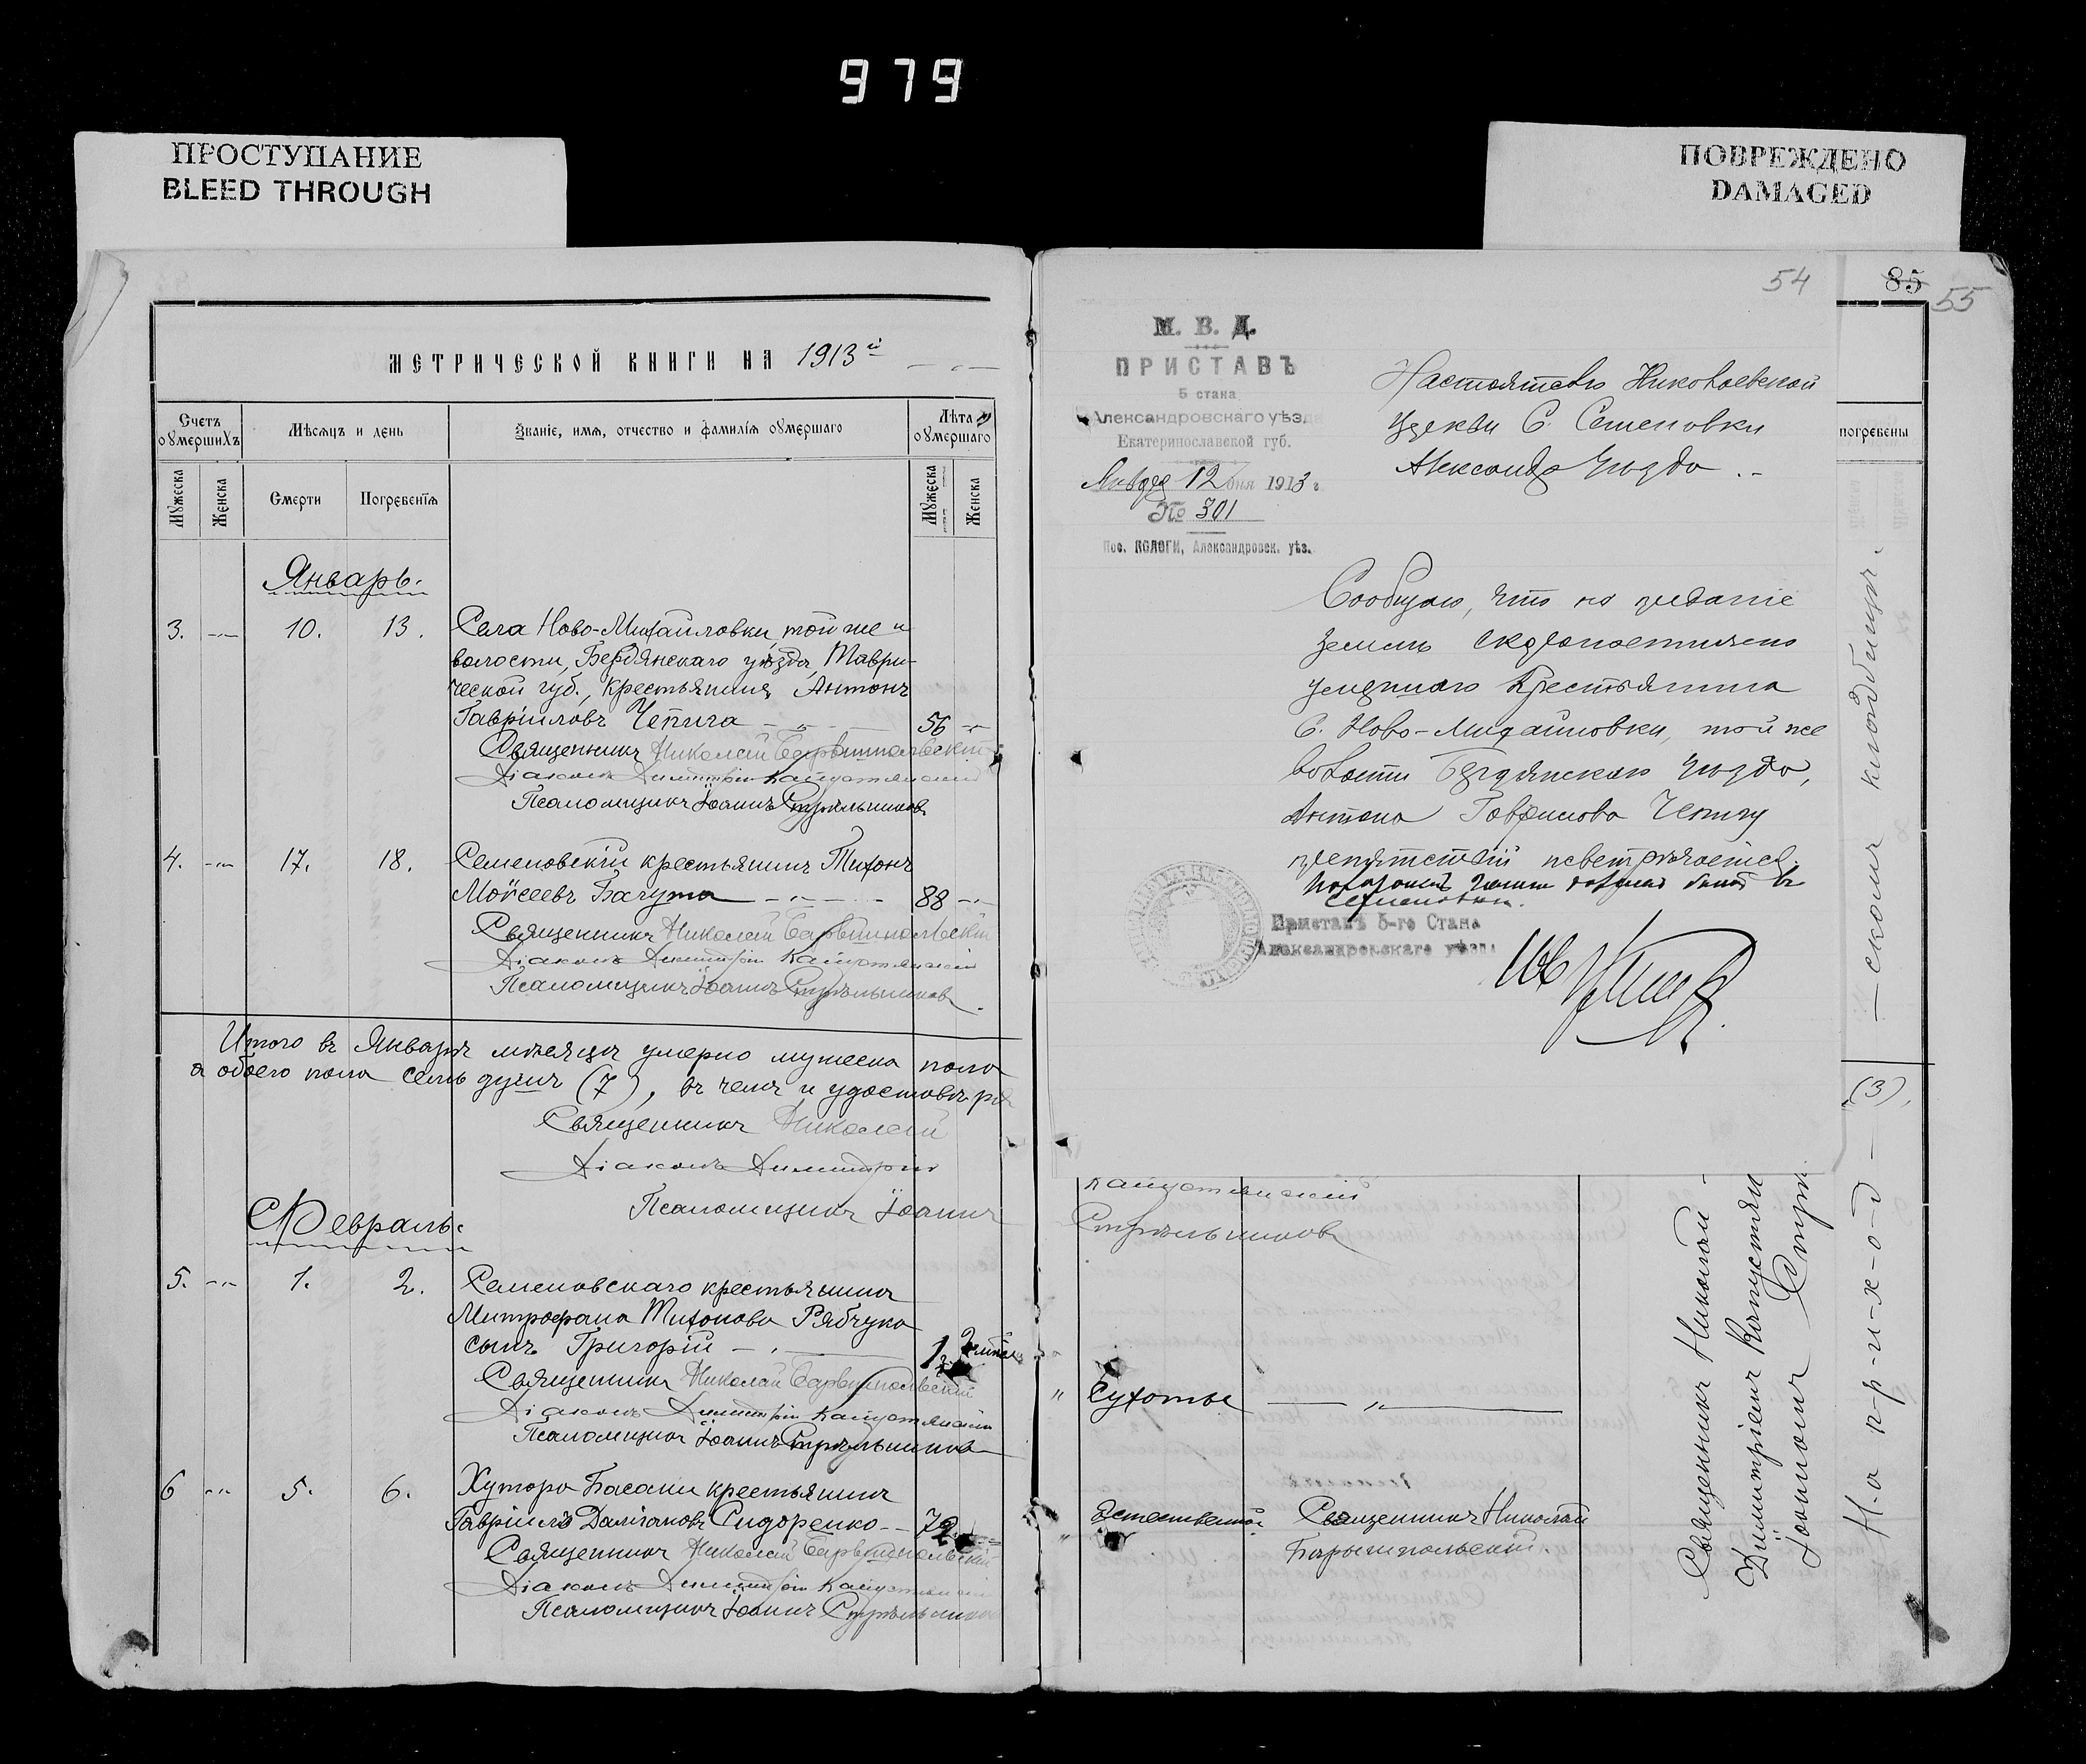 979
ПРОСТУПАНИЕ
BLEED THROUGH
ПОВРЕЖДЕНО
DAMAGED
МЕТРИЧЕСКОЙ КНИГИ НА 1913й
Счетъ оумершихъ
Мѣсяцъ и день
Званіе, имя, отчество и фамилія оумершаго
Лѣта оумершаго
Мужеска
Женска
Смерти
Погребенія
Мужеска
Женска
Январь.
3. 10. 13. Села Ново-Михайловки, той же
волости, Бердянскаго уѣзда, Таври-
ческой губ., крестьянинъ Антонъ
Гавріиловъ Чепига 56
Священникъ Николай Барвишпольскій
Діаконъ Димитрій Капустянскій
Псаломщикъ Іоаннъ Стрѣльниковъ
4. 17. 18. Семеновскій крестьянинъ Тихонъ
Моѵсеевъ Бачута 88
Священникъ Николай
Діаконъ Димитрій Капустянскій
Псаломщикъ Іоаннъ Стрѣльниковъ.
Итого въ Январѣ мѣсяцѣ умерло мужеска пола
а обоего пола семь душъ (7), въ чемъ и удостовѣр
Священникъ Николай
Діаконъ Димитрій
Псаломщикъ Іоаннъ
Февраль.
5. 1. 2. Семеновскаго крестьянина
Митрофана Тихонова Рябчука
сынъ Григорій
Священникъ Николай
Діаконъ Димитрій Капустянскій
Псаломщикъ Іоаннъ Стрѣльниковъ
6 5. 6. Хутора Басани крестьянинъ
Гавріилъ Даміановъ Сидоренко 72
Священникъ Николай
Діаконъ Димитрій Капустянскій
Псаломщикъ Іоаннъ Стрѣльников
54
85
55
М. В. Д.
ПРИСТАВЪ
5 стана
Александровскаго уѣзда
Екатеринославской губ.
Января 12 дня 1913 г.
№ 301
Пос. ПОЛОГИ, Александровск. уѣз.
Настоятелю Николаевской
Церкви С. Семеновки
Александ. Уѣзда.
Сообщаю, что на преданіе
землѣ скоропостижно
умершаго Крестьянина
С. Ново-Михайловки, той же
волости Бердянскаго Уѣзда,
Антона Гаврилова Чепигу
препятствій невстрѣчается.
Семеновки.
Приставъ 5-го Стана
Александровскаго уѣзда
погребены
—скомъ кладбищѣ.
(3),
Капустянскій
Стрѣльниковъ
" Сухоты
Естественной Священникъ Николай
Барышпольскій.
Священникъ Николай
Димитріемъ Капустяни
Іоанномъ Стрѣ
На п-р-и-х-о-д